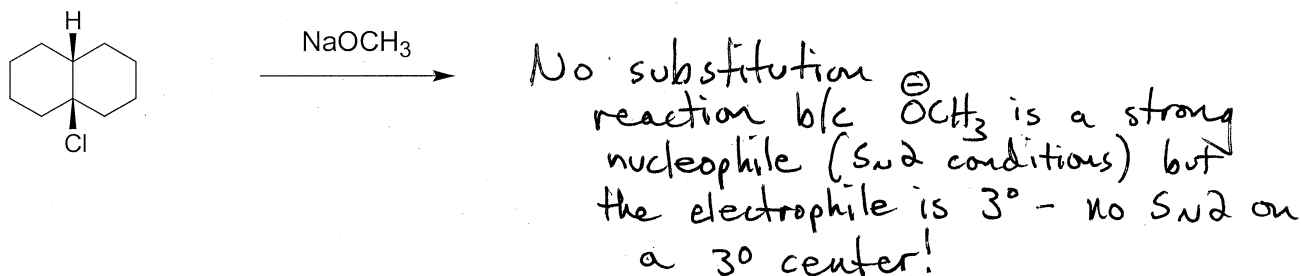 H
NaOCH3
Cl
No substitution
reaction b/c ⊖OCH3 is a strong
nucleophile (SN2 conditions) but
the electrophile is 3° - no SN2 on
a 3° center!